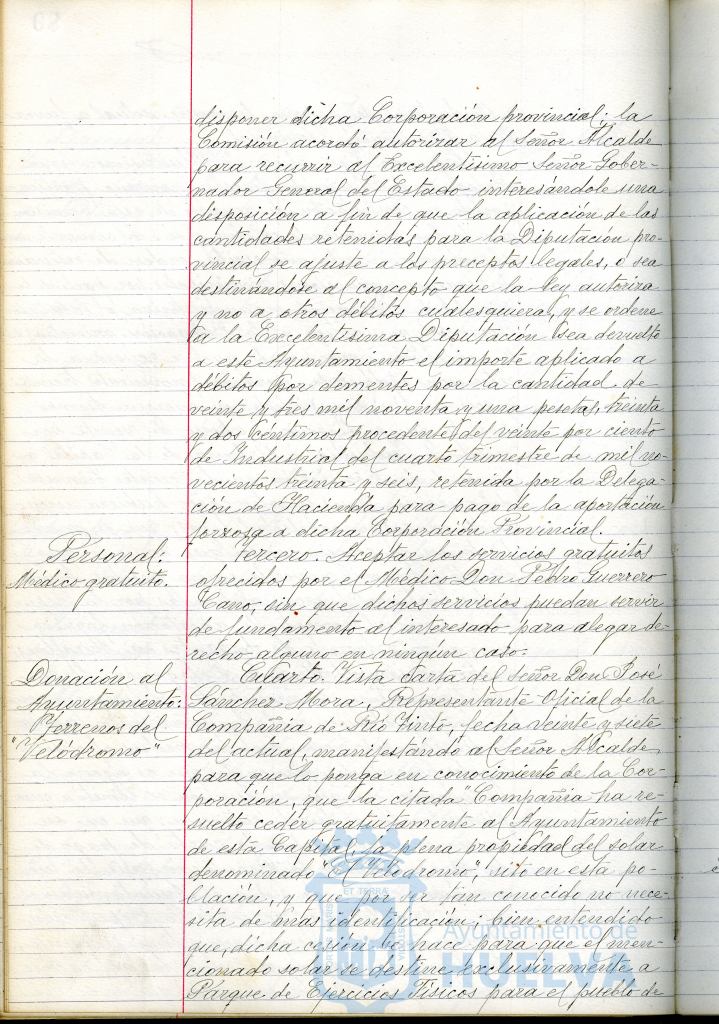 disponer dicha Corporación provincial; la
Comisión acordó autorizar al Señor Alcalde
para recurrir al Excelentísimo Señor Gober-
nador General del Estado interesándole una
disposición a fin de que la aplicación de las
cantidades retenidas para la Diputación pro-
vincial se ajuste a los preceptos legales, o sea
destinándose al concepto que la ley autoriza
y no a otros débitos cualesquiera, y se ordene
a la Excelentísima Diputación sea devuelto
a este Ayuntamiento el importe aplicado a
débitos por dementes por la cantidad de
veinte y tres mil noventa y una pesetas, treinta
y dos céntimos procedente del veinte por ciento
de Industrial del cuarto trimestre de mil no-
vecientos treinta y seis, retenida por la Delega-
ción de Hacienda para pago de la aportación
forzosa a dicha Corporación Provincial.
Personal:
Médico gratuito.
Tercero. Aceptar los servicios gratuitos
ofrecidos por el Médico Don Pedro Guerrero
Cano, sin que dichos servicios puedan servir
de fundamento al interesado para alegar de-
recho alguno en ningún caso.
Donación al
Ayuntamiento:
Terrenos del
"Velódromo"
Cuarto. Vista carta del Señor Don José
Sánchez Mora, Representante Oficial de la
Compañía de Río Tinto, fecha veinte y siete
del actual, manifestando al Señor Alcalde,
para que lo ponga en conocimiento de la Cor-
poración, que la citada "Compañía ha re-
suelto ceder gratuitamente al Ayuntamiento
de esta Capital, la plena propiedad del solar
denominado "El Velódromo", sito en esta po-
blación, y que por ser tan conocido no nece-
sita de más identificación; bien entendido
que, dicha cesión se hace para que el men-
cionado solar se destine exclusivamente a
Parque de Ejercicios Físicos para el pueblo de
Ayuntamiento de
HUELVA